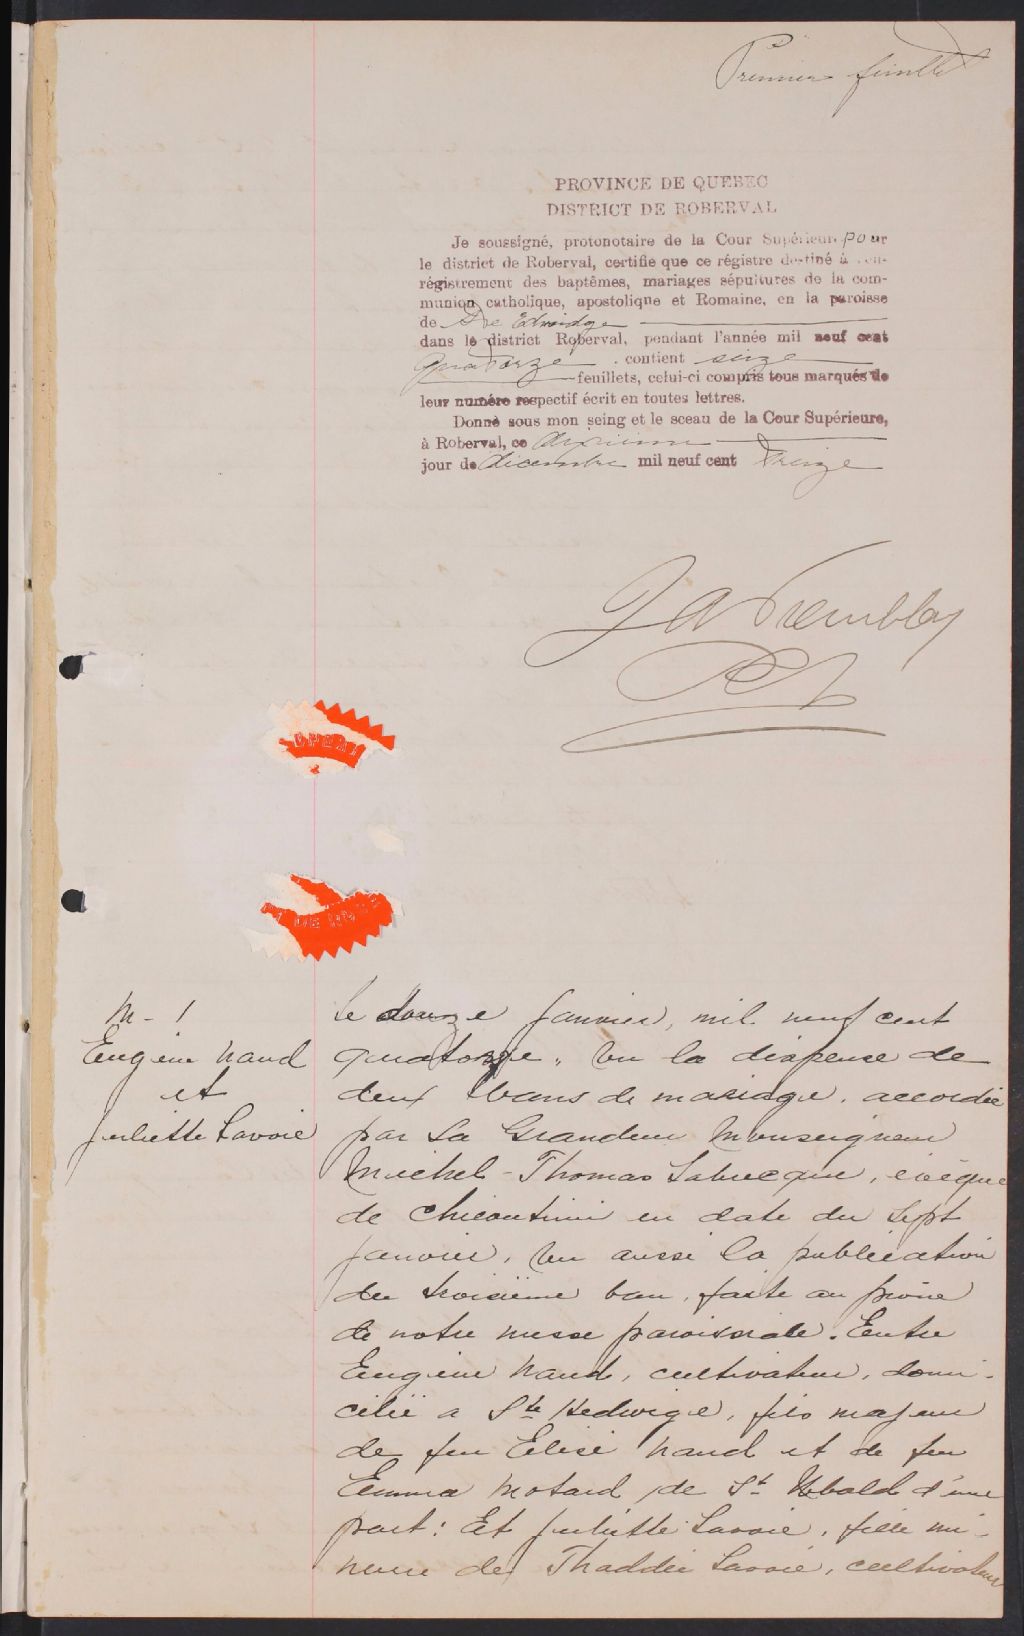 Premier feuillet
PROVINCE DE QUEBEC
DISTRICT DE ROBERVAL
Je soussigné, protonotaire de la Cour Supérieure pour
le district de Roberval, certifie que ce régistre destiné à l'en-
régistrement des baptêmes, mariages sépultures de la com-
munion catholique, apostolique et Romaine, en la paroisse
de Ste Edwidge
dans le district Roberval, pendant l'année mil neuf cent
quatorze contient seize
feuillets, celui-ci compris tous marqués de
leur numéro respectif écrit en toutes lettres.
Donné sous mon seing et le sceau de la Cour Supérieure,
à Roberval, ce
jour de décembre mil neuf cent treize
J A Tremblay
M - 1
Eugène Naud
et
Juliette Savoie
Le douze janvier, mil neuf cent
quatorze, Vu la dispense de
deux bans de mariage, accordée
par Sa Grandeur Monseigneur
Michel-Thomas Labrecque, évêque
de Chicoutimi en date du sept
janvier, Vu aussi la publication
du troisième ban, faite au prône
de notre messe paroissiale. Entre
Eugène Naud, cultivateur, domi-
cilié a Ste Hedwige, fils majeur
de feu Elisé Naud et de feu
Emma Motard de St Ubald d'une
part: Et Juliette Savoie, fille mi-
neure de Thaddée Savoie, cultivateur